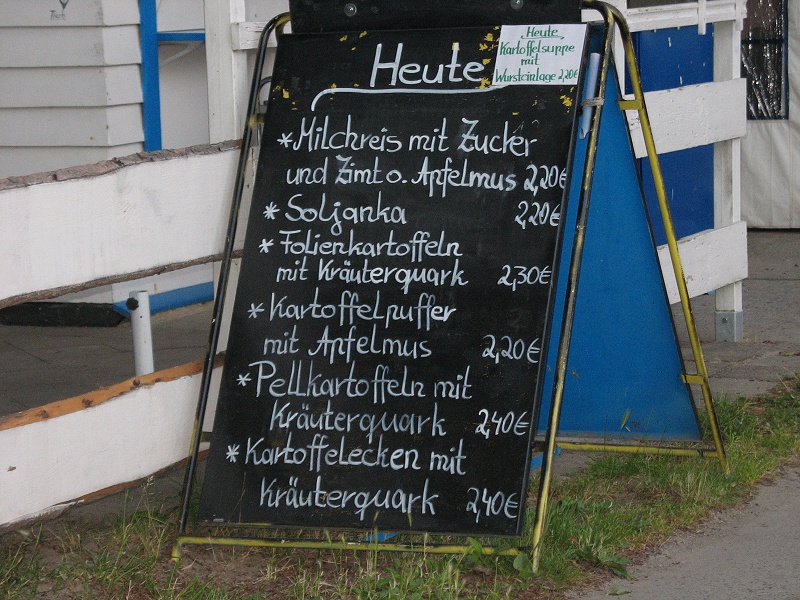 Heute
Heute
Kartoffelsuppe
mit
Wursteinlage 2,20€
*Milchreis mit Zucker
und Zimt o. Apfelmus 2,20€
* Soljanka 2,20€
* Folienkartoffeln
mit Kräuterquark 2,30€
* Kartoffelpuffer
mit Apfelmus 2,20€
* Pellkartoffeln mit
Kräuterquark 2,40€
* Kartoffelecken mit
Kräuterquark 2,40€